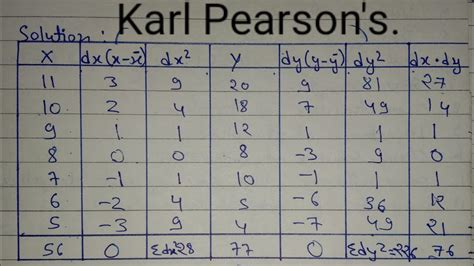 Karl Pearson's.
Solution :
X dx(x-x̄) dx² Y dy(y-ȳ) dy² dx·dy
11 3 9 20 9 81 27
10 2 4 18 7 49 14
9 1 1 12 1 1 1
8 0 0 8 -3 9 0
7 -1 1 10 -1 1 1
6 -2 4 5 -6 36 12
5 -3 9 4 -7 49 21
56 0 Σdx²28 77 0 Σdy²=226 76